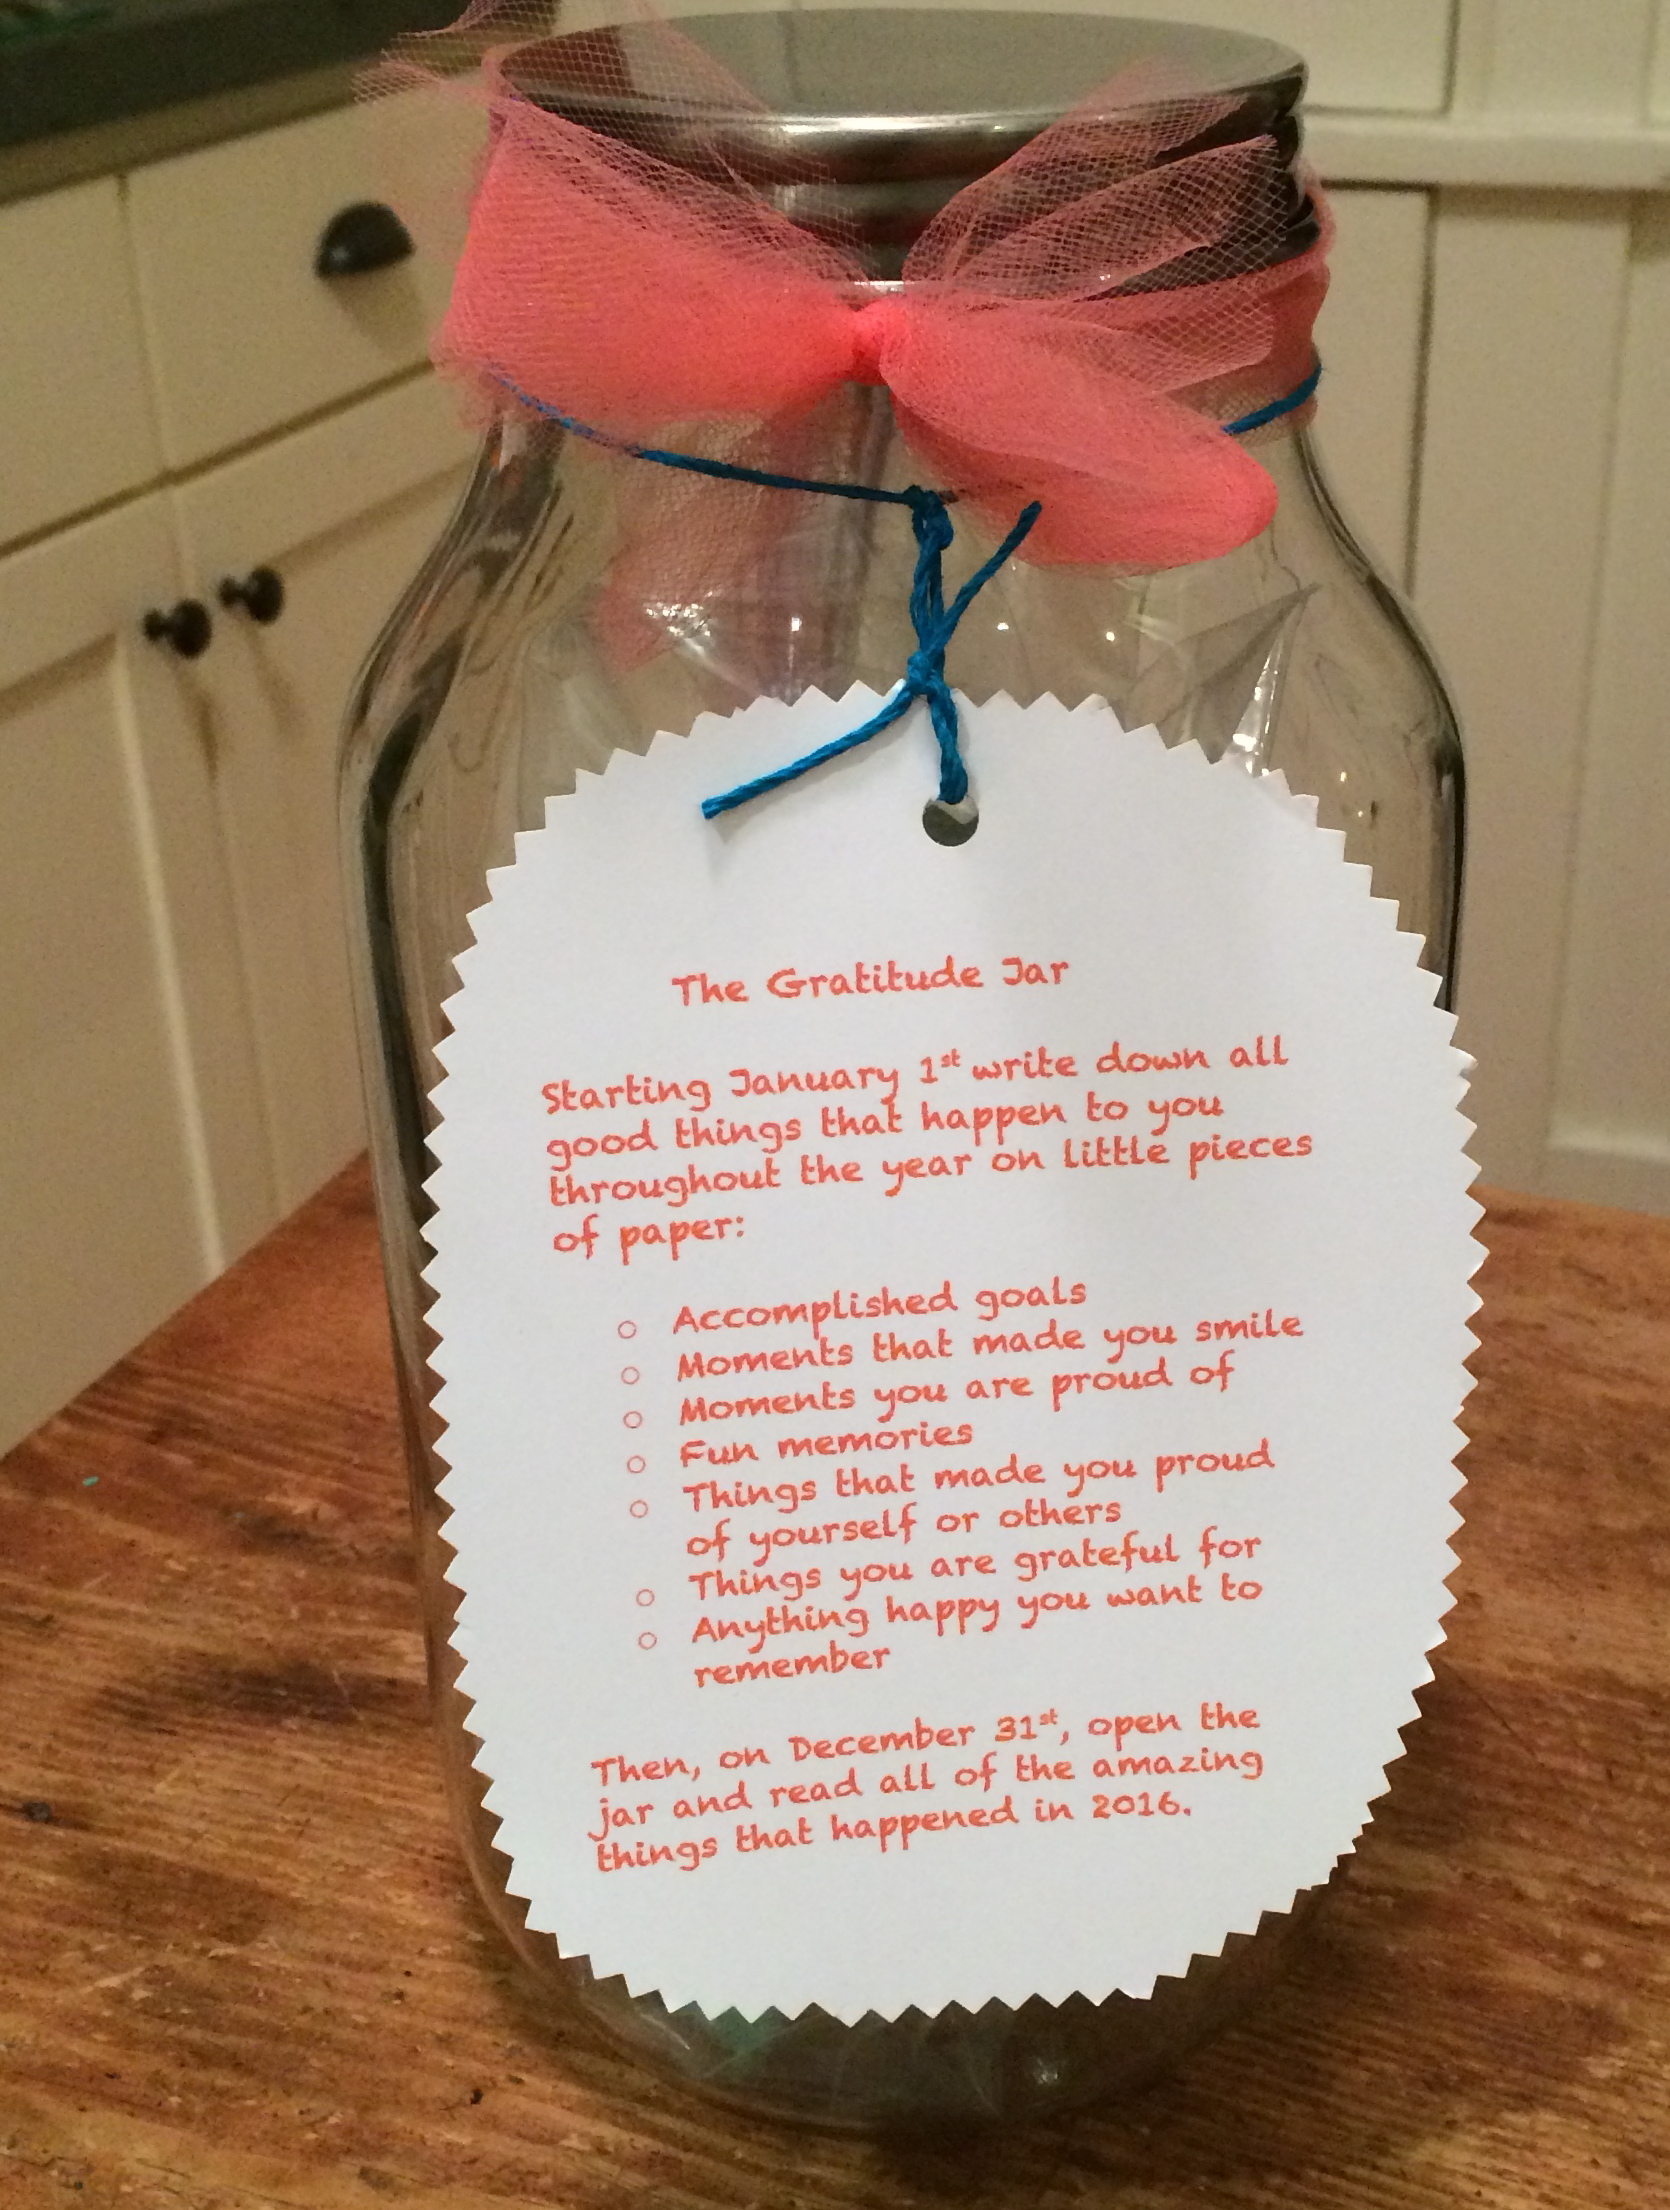 The Gratitude Jar
Starting January 1st write down all
good things that happen to you
throughout the year on little pieces
of paper:
○ Accomplished goals
○ Moments that made you smile
○ Moments you are proud of
○ Fun memories
○ Things that made you proud
of yourself or others
○ Things you are grateful for
○ Anything happy you want to
remember
Then, on December 31st, open the
jar and read all of the amazing
things that happened in 2016.